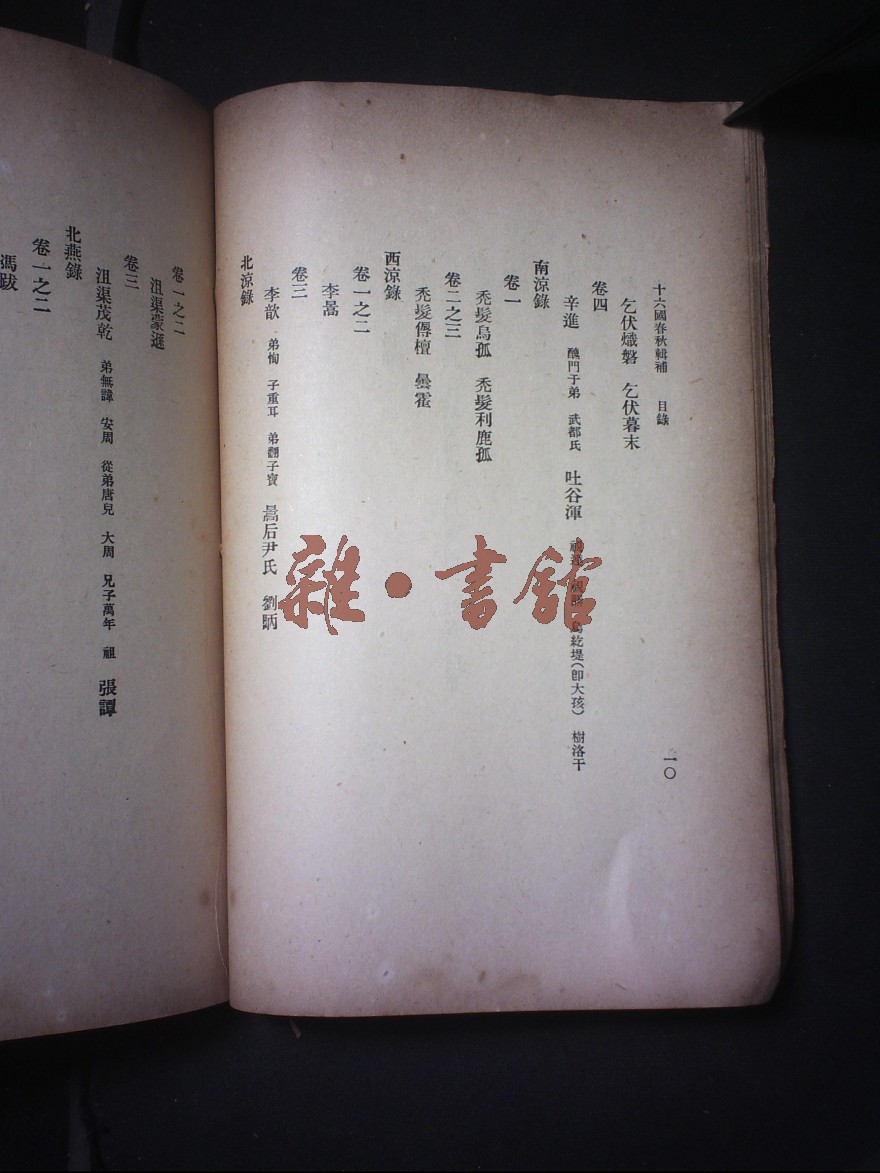 十六國春秋輯補　目錄
一〇
乞伏熾磐　乞伏暮末
卷四
辛進　醜門于弟　武都氏　吐谷渾　視　烏紇堤（即大孩）　樹洛干
南涼錄
卷一
禿髮烏孤　禿髮利鹿孤
卷二之三
禿髮傉檀　曇霍
西涼錄
卷一之二
李暠
卷三
李歆　弟恂　子重耳　弟翻子寶　暠后尹氏　劉昞
北涼錄
卷一之二
沮渠蒙遜
卷三
沮渠茂乾　弟無諱　安周　從弟唐兒　大周　兄子萬年　祖　張譚
北燕錄
卷一之二
馮跋
雜·書館